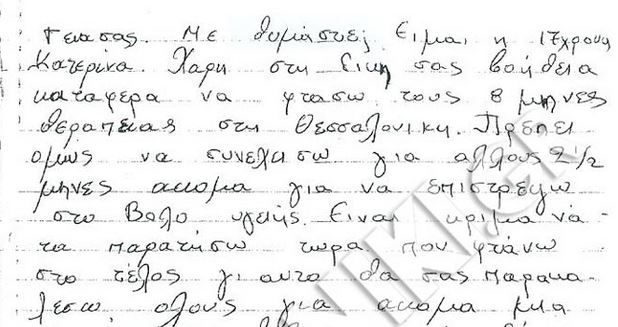 Γεια σας. Με θυμάστε; Είμαι η 17χρονη
Κατερίνα. Χάρη στη δικη σας βοήθεια
κατάφερα να φτάσω τους 8 μηνες
θεραπείας στη Θεσσαλονικη. Πρεπει
ομως να συνεχισω για αλλους 2 1/2
μηνες ακομα για να επιστρεψω
στο Βολο υγειής. Ειναι κριμα να
τα παρατησω τωρα που φτάνω
στο τέλος γι αυτο θα σας παρακα-
λεσω ολους για ακομα μια